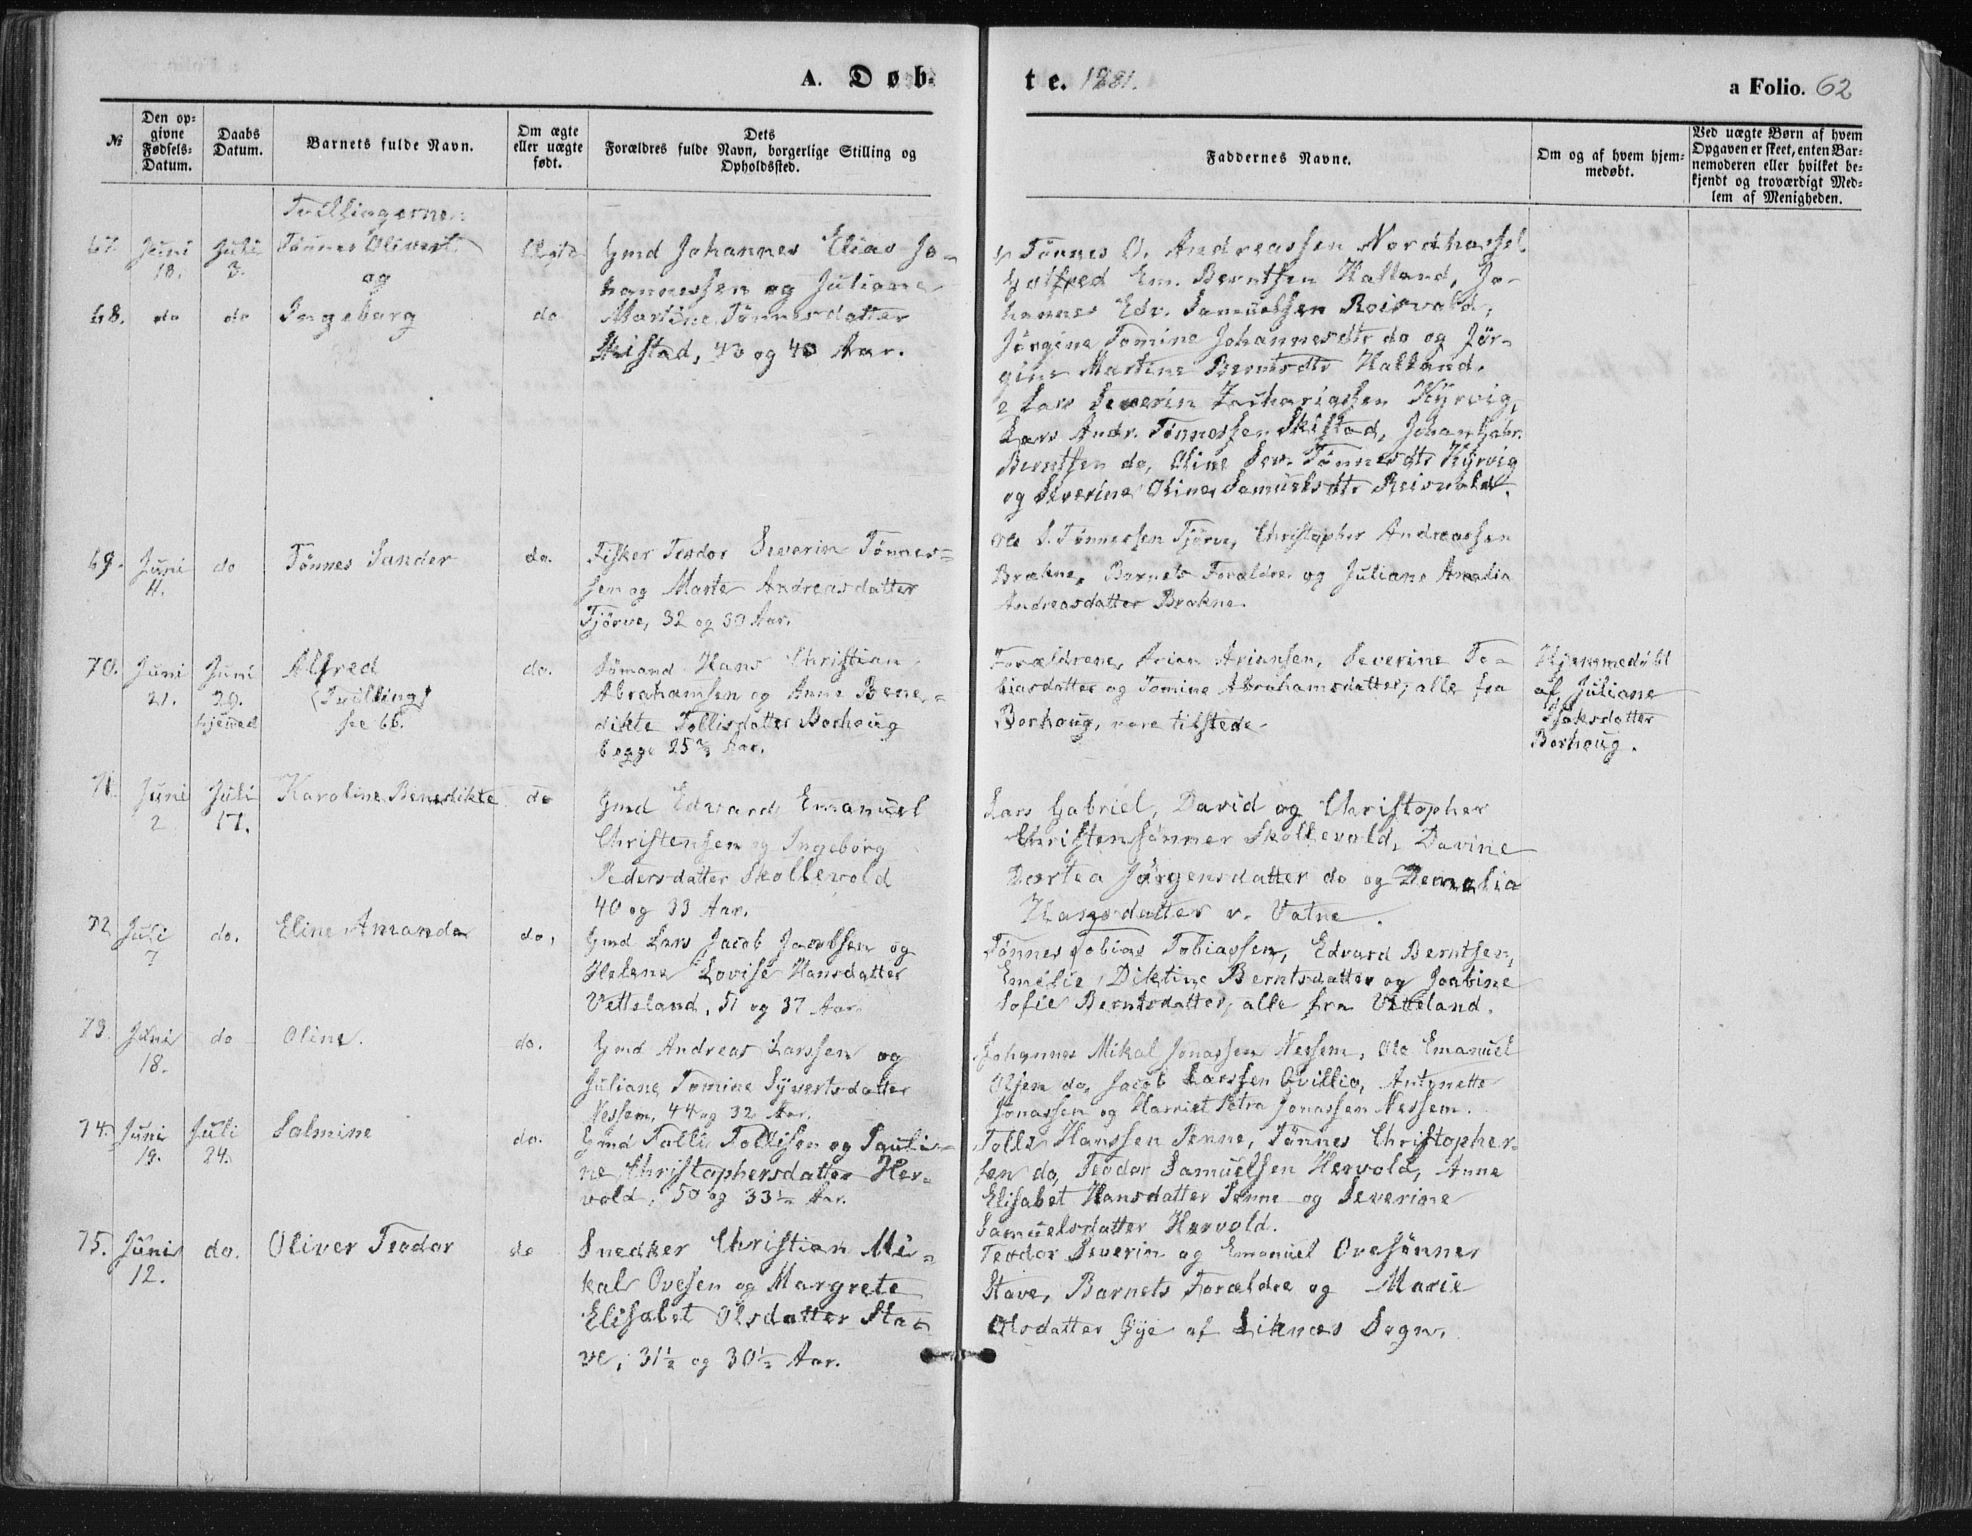 A. Døb-
te. 1881.
a Folio. 62
№
Den op-
givne
Fødsels-
Datum.
Daabs
Datum.
Barnets fulde Navn.
Om ægte
eller uægte
født.
Dets
Forældres fulde Navn, borgerlige Stilling og
Opholdssted.
Faddernes Navne.
Om og af hvem hjem-
medøbt.
Ved uægte Børn af hvem
Opgaven er skeet, enten Bar-
nemoderen eller hvilket be-
kjendt og troværdigt Med-
lem af Menigheden.
Tvillingerne:
67. Juni 18. Juli 3. Tønnes Olivert Ægte Gmd Johannes Elias Jo-
og hannessen og Juliane
68. do do Ingeborg do Martine Tønnesdatter
Skistad, 43 og 40 Aar.
Tønnes O. Andreassen Nordhassel
Gotfred Em. Berntsen Halland, Jo-
hannes Edv. Samuelssen Reisvold,
Jørgine Tomine Johannesdtr do og Jør-
gine Martine Berntsdtr Halland.
Lars Severin Zachariassen Kyrvig,
Lars Andr. Tønnessen Skistad, Johan Gabr.
Berntsen do, Oline Sev. Tønnesdtr Kyrvig
og Severine Oline Samuelsdtr Reisvold.
69. Juni 11. do Tønnes Sander do. Fisker Teodor Severin Tønnes-
sen og Marte Andreasdatter
Tjørve, 32 og 30 Aar.
Ole S. Tønnessen Tjørve, Christopher Andreassen
Brækne, Barnets Forældre og Juliane Amalia
Andreasdatter Brækne.
70. Juni 21. Juni 29. hjemmed Alfred do. Sømand Hans Christian
(Tvilling) Abrahamsen og Anne Bene-
see 66. dikte Tollisdatter Borhoug
begge 25 2/3 Aar.
Forældrene, Arian Ariansen, Severine To-
biasdatter og Tomine Abrahamsdatter, alle fra
Borhoug, vare tilstede.
Hjemmedøbt
af Juliane
Isaksdatter
Borhoug.
71. Juni 2 Juli 17. Karoline Benedikte do Gmd Edvard Emanuel
Christensen og Ingeborg
Pedersdatter Skollevold
40 og 33 Aar.
Lars Gabriel, David og Christopher
Christensønner Skollevold, Davine
Dortea Jørgensdatter do og
Hansdatter v. Vatne.
72. Juli 7 do. Eline Amanda do, Gmd Lars Jacob Jacobsen og
Helene Lovise Hansdatter
Vetteland, 51 og 37 Aar.
Tønnes Tobias Tobiassen, Edvard Berntsen,
Emelie Diktine Berntsdatter og Joabine
Sofie Berntsdatter, alle fra Vetteland.
73. Juni 18. do Oline. do. Gmd Andreas Larssen og
Juliane Tomine Syvertsdatter
Nessem, 44 og 32 Aar.
Johannes Mikal Jonassen Nessem, Ole Emanuel
Olsen do, Jacob Larssen Qvillio, Antonette
Jonassen og Harriet Petra Jonassen Nessem.
74. Juni 19. Juli 24. Salmine do. Gmd Tolli Tollisen og Pauli-
ne Christophersdatter Her-
vold, 50 og 33 1/2 Aar.
Tolli Hanssen Penne, Tønnes Christopher-
sen do, Teodor Samuelsen Hervold, Anne
Elisabet Hansdatter Penne og Severine
Samuelsdatter Hervold.
75. Juni 12. do. Oliver Teodor do Snedker Christian Mi-
kal Ovesen og Margrete
Elisabet Olsdatter Sta-
ve, 31 1/2 og 30 1/2 Aar.
Teodor Severin og Emanuel Ovesønner
Stave, Barnets Forældre og Marie
Olsdatter Øije af Liknæs Sogn.